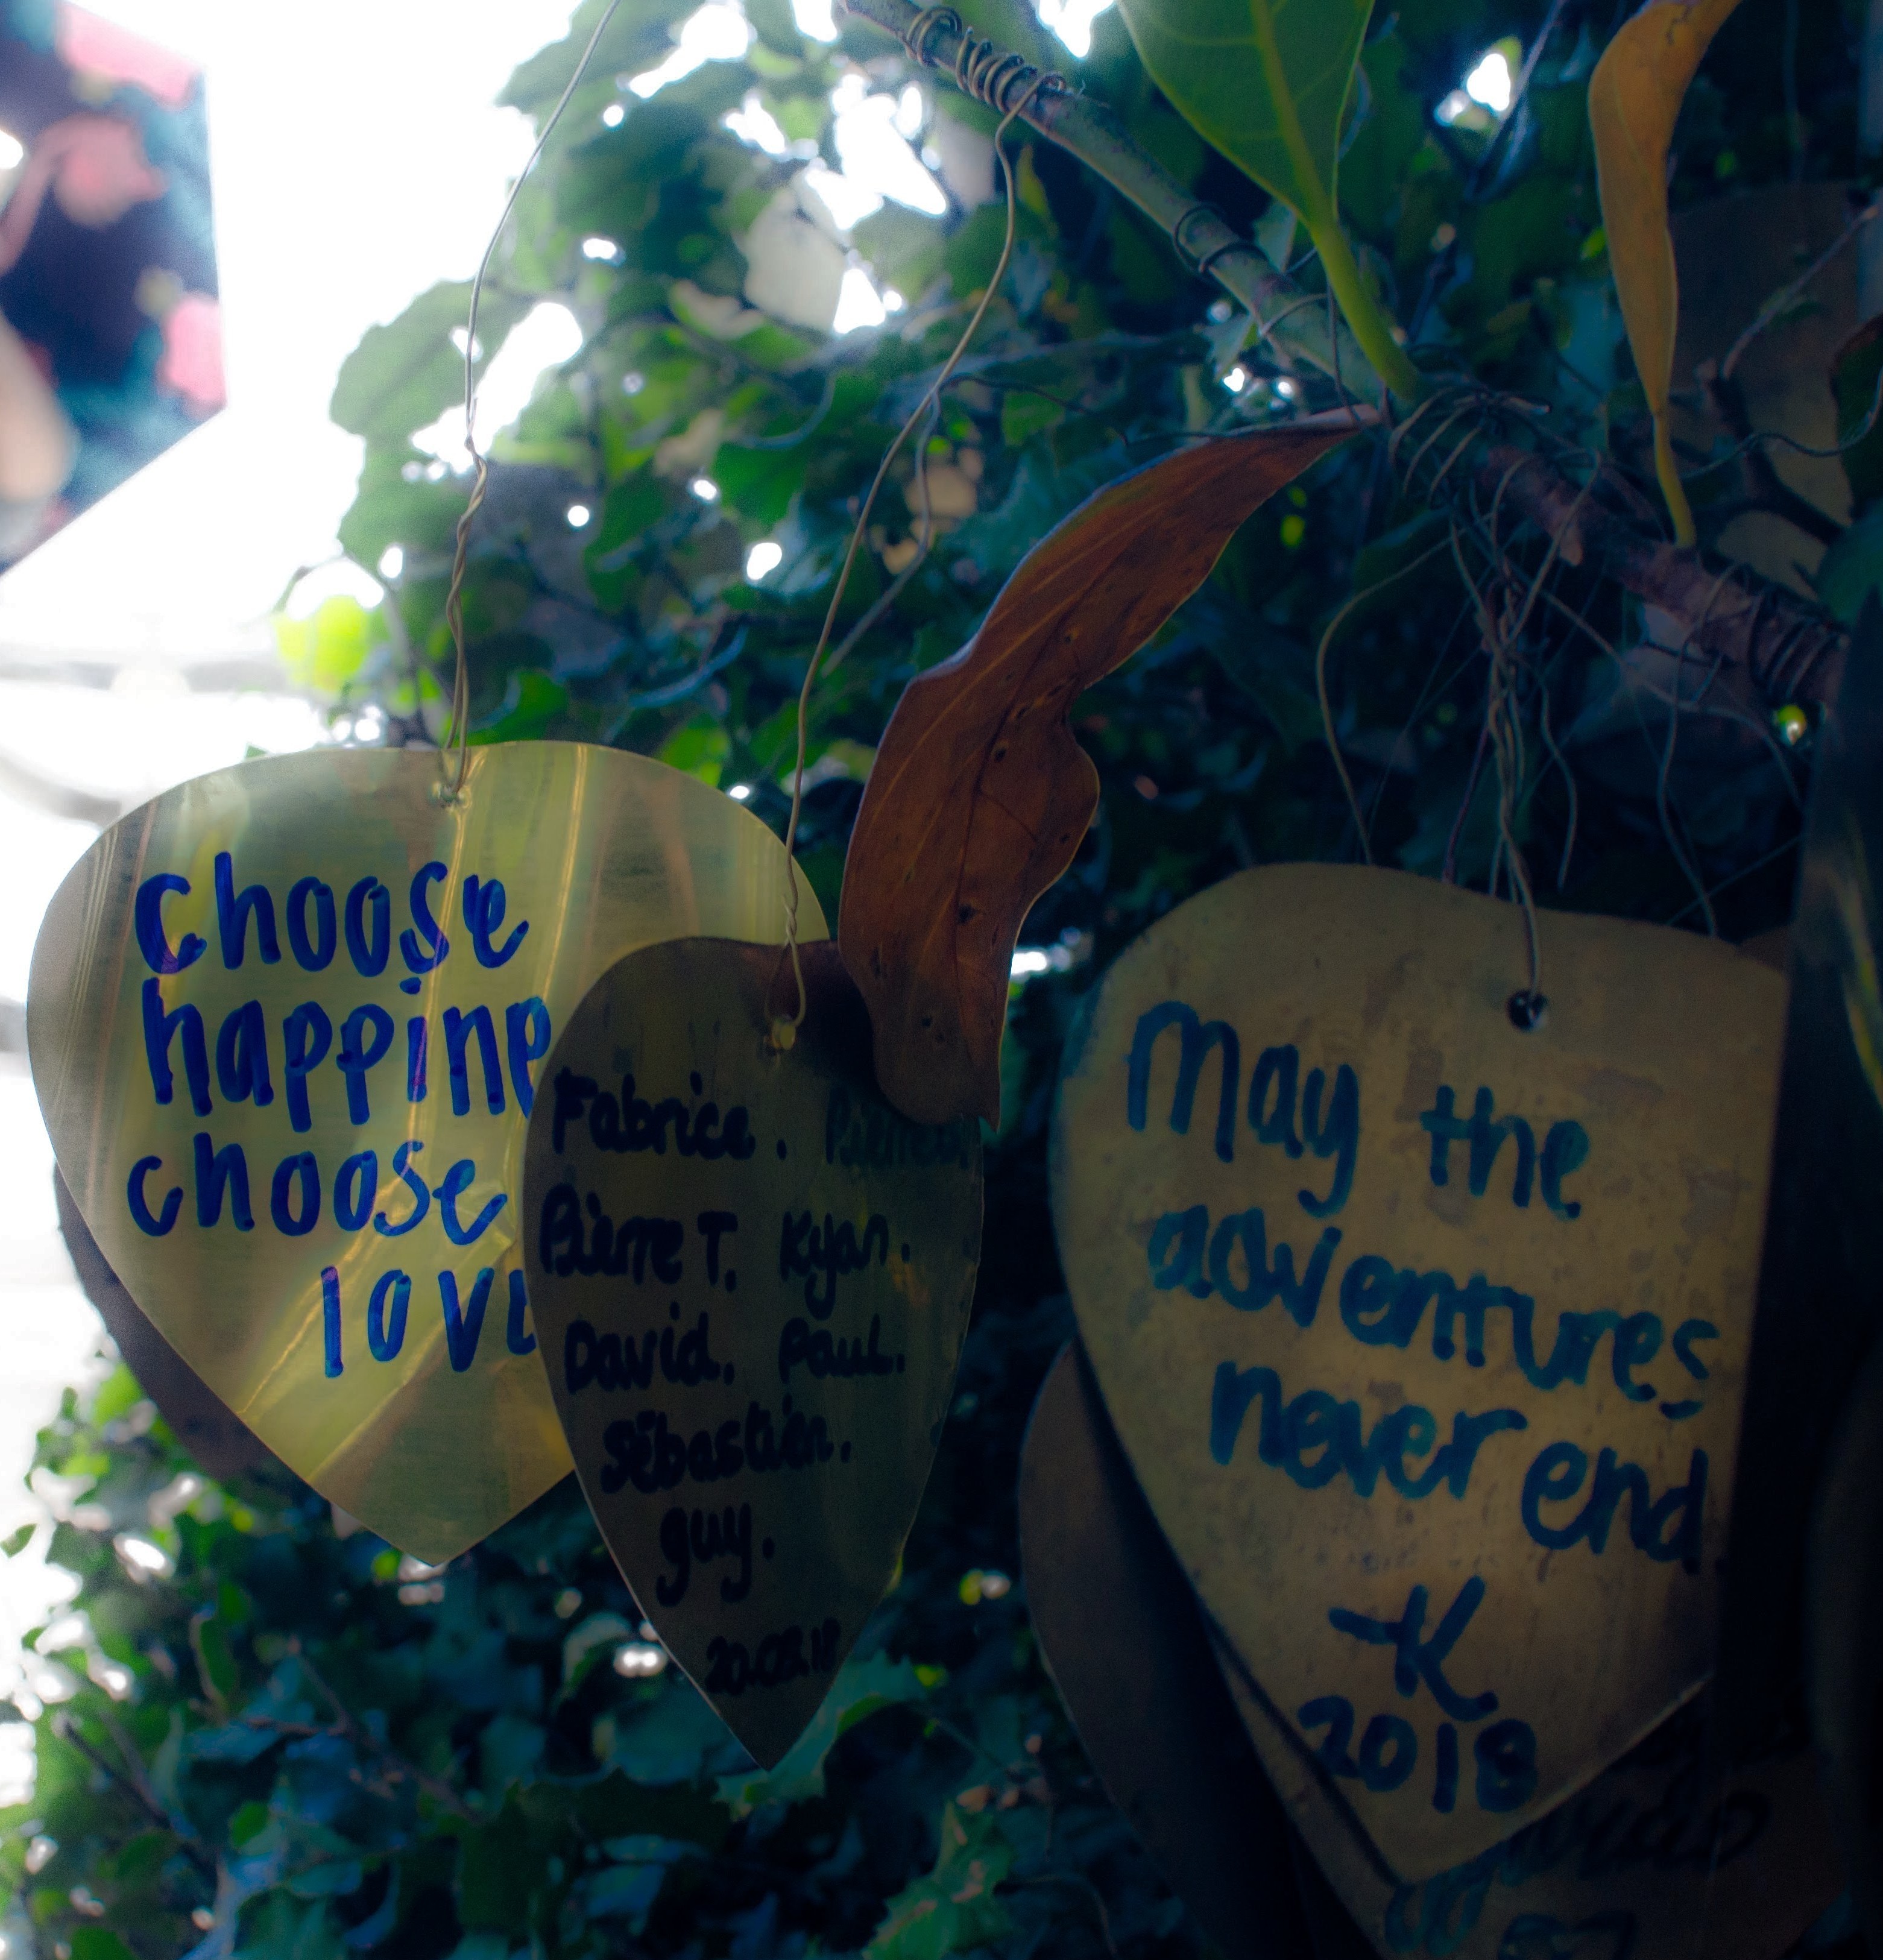 choose
happine
choose
love
Fabrice.
Pierre T. Kyan.
David. Paul.
Sébastien.
guy.
May the
adventures
never end
-K
2018